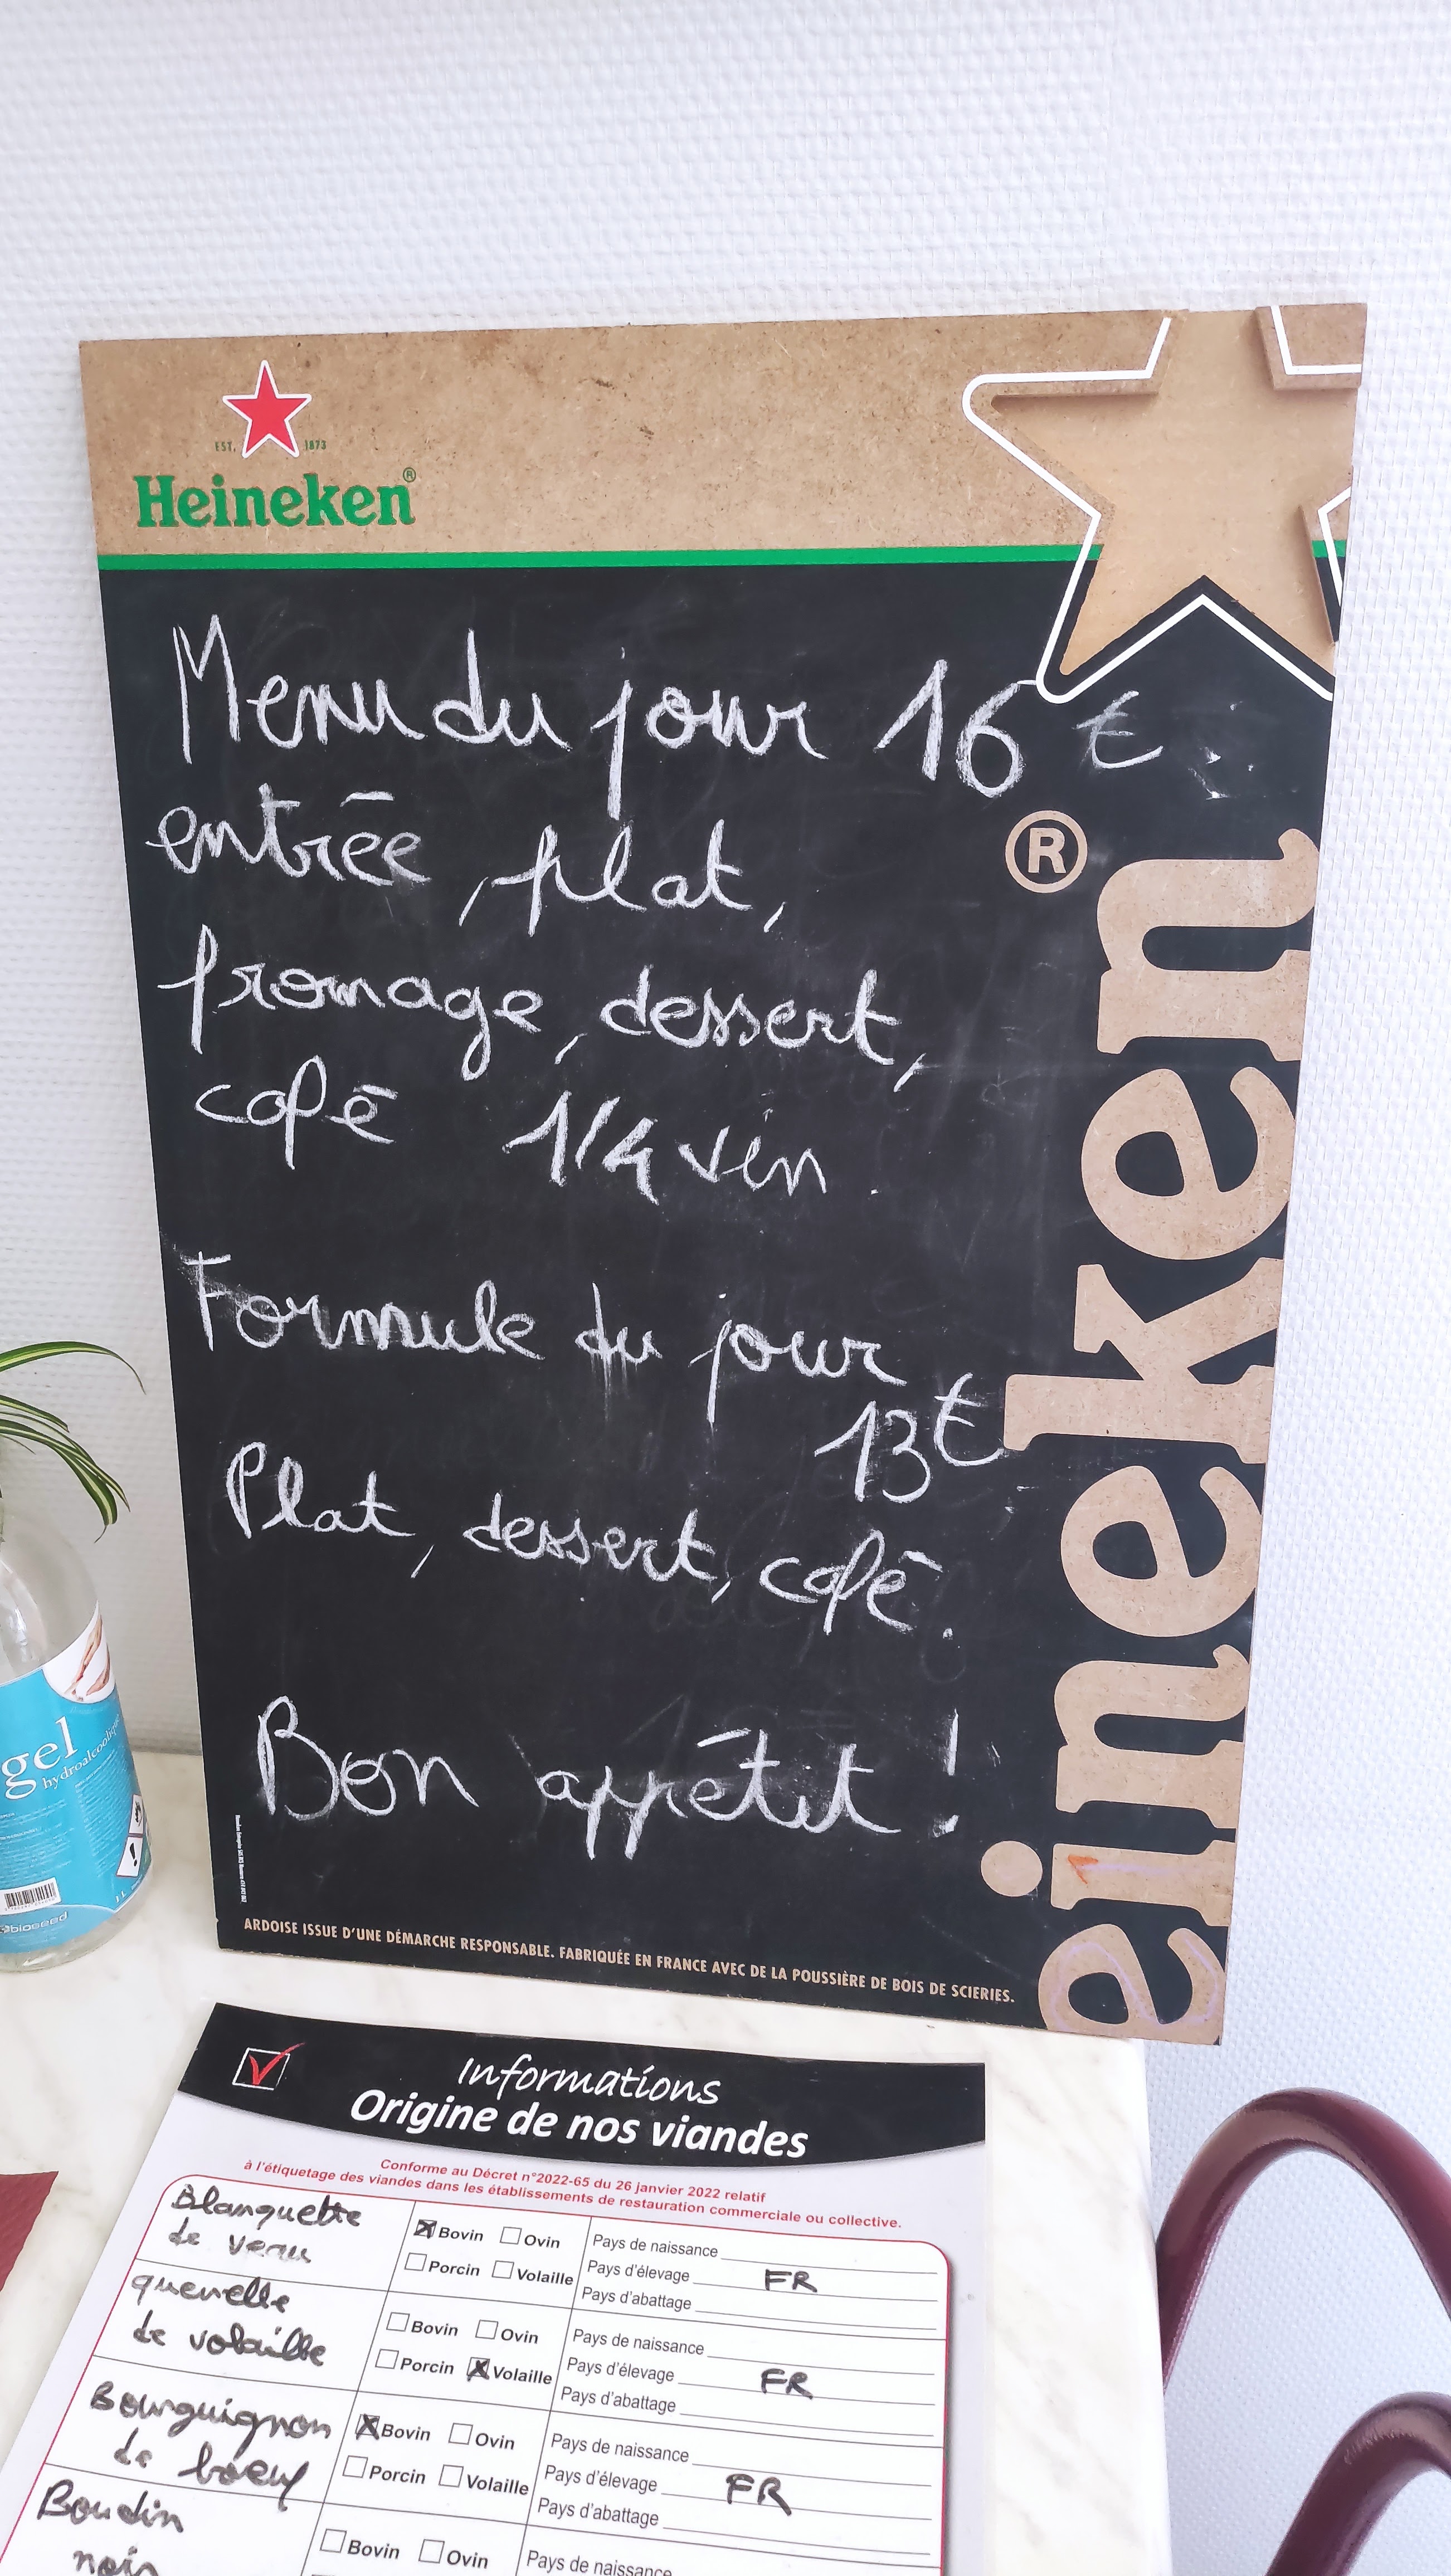 EST. 1873
Heineken®
Menu du jour 16 €
entrée, plat,
fromage, dessert,
café 1/4 vin.
Formule du jour
13€
Plat, dessert, café.
Bon appétit !
®
eineken
ARDOISE ISSUE D'UNE DÉMARCHE RESPONSABLE. FABRIQUÉE EN FRANCE AVEC DE LA POUSSIÈRE DE BOIS DE SCIERIES.
gel
hydroalcoolique
1L
bioseed
Informations
Origine de nos viandes
Conforme au Décret n°2022-65 du 26 janvier 2022 relatif
à l'étiquetage des viandes dans les établissements de restauration commerciale ou collective.
Blanquette
de veau
Bovin Ovin
Porcin Volaille
Pays de naissance
Pays d'élevage FR
Pays d'abattage
quenelle
de volaille
Bovin Ovin
Porcin Volaille
Pays de naissance
Pays d'élevage FR
Pays d'abattage
Bourguignon
de boeuf
Bovin Ovin
Porcin Volaille
Pays de naissance
Pays d'élevage FR
Pays d'abattage
Boudin
noir
Bovin Ovin
Pays de naissance